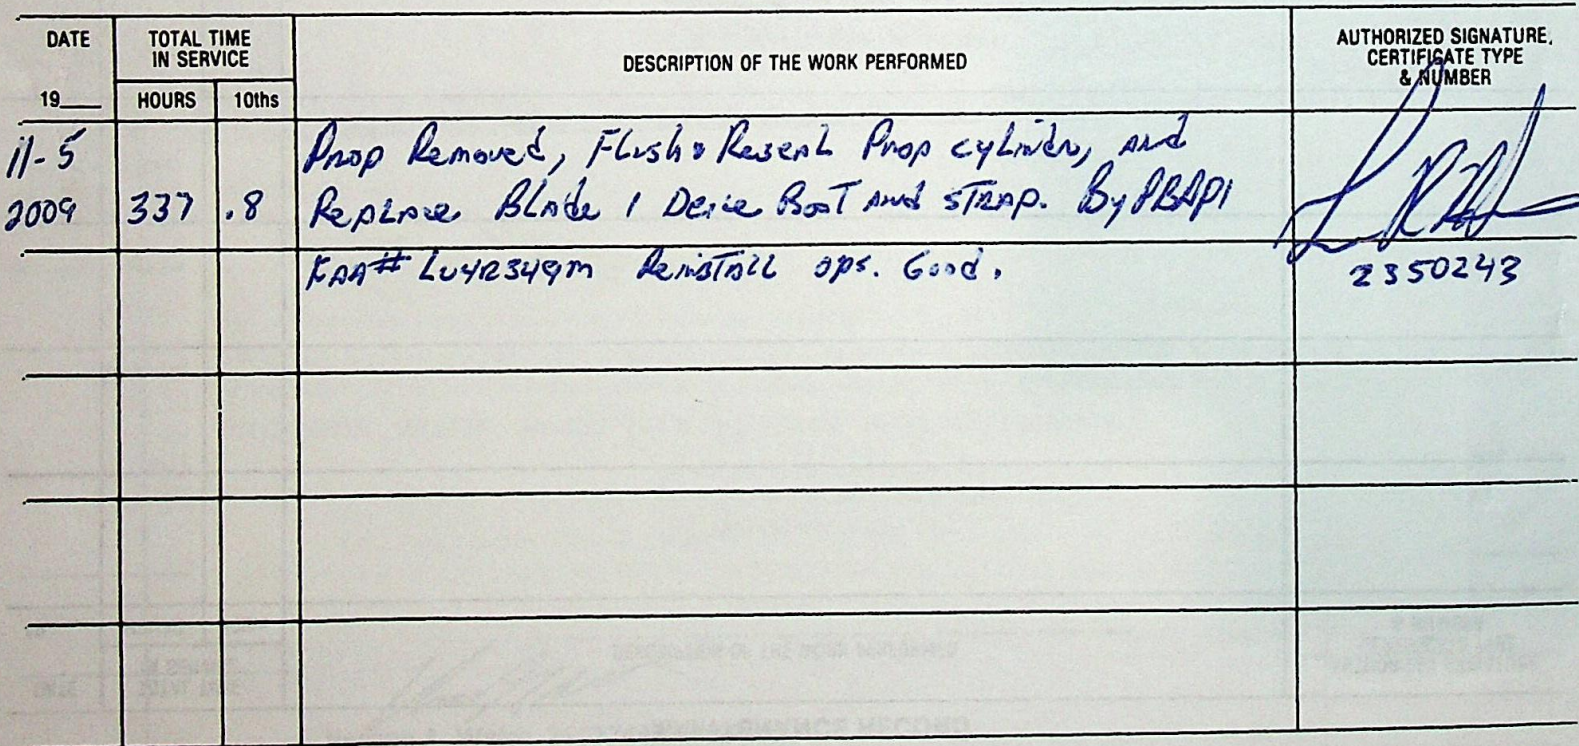 DATE
TOTAL TIME
IN SERVICE
DESCRIPTION OF THE WORK PERFORMED
AUTHORIZED SIGNATURE,
CERTIFICATE TYPE
& NUMBER
19___ HOURS 10ths
11-5 Prop Removed, Flush & Reseal Prop cylinder, and
2009 337 .8 Replace Blade 1 Deice Boot and strap. By PBAPI
FAA# LU4R349M Reinstall ops. Good.
2350243